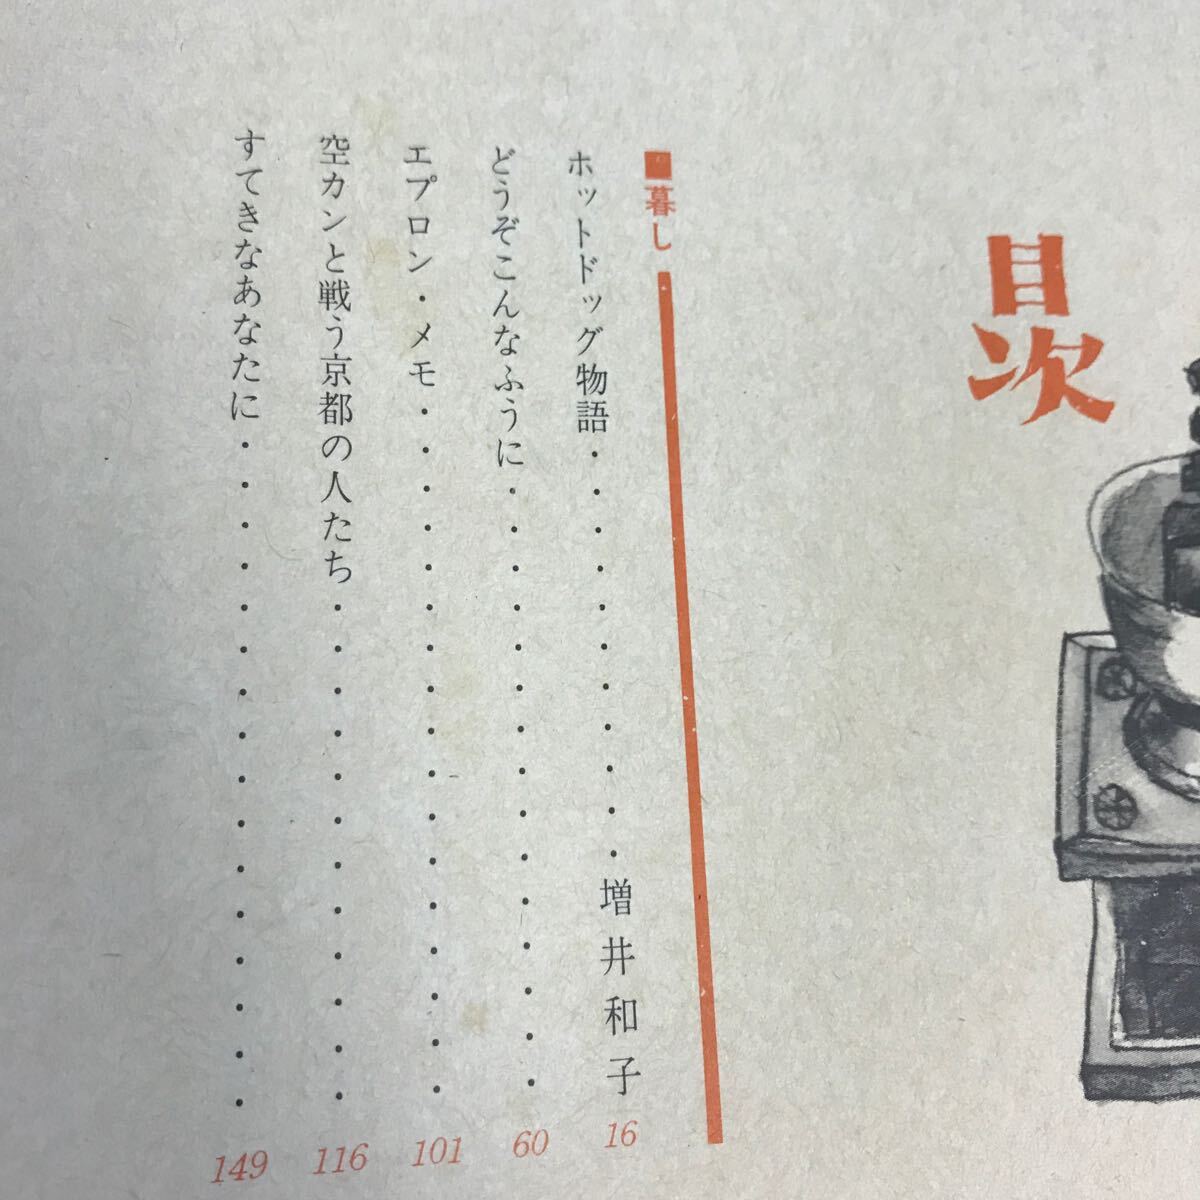 目次
■暮し
ホットドッグ物語・・・・・・・・・・・増井和子 16
どうぞこんなふうに・・・・・・・・・・・・・・・ 60
エプロン・メモ・・・・・・・・・・・・・・・・・ 101
空カンと戦う京都の人たち・・・・・・・・・・・・ 116
すてきなあなたに・・・・・・・・・・・・・・・・ 149